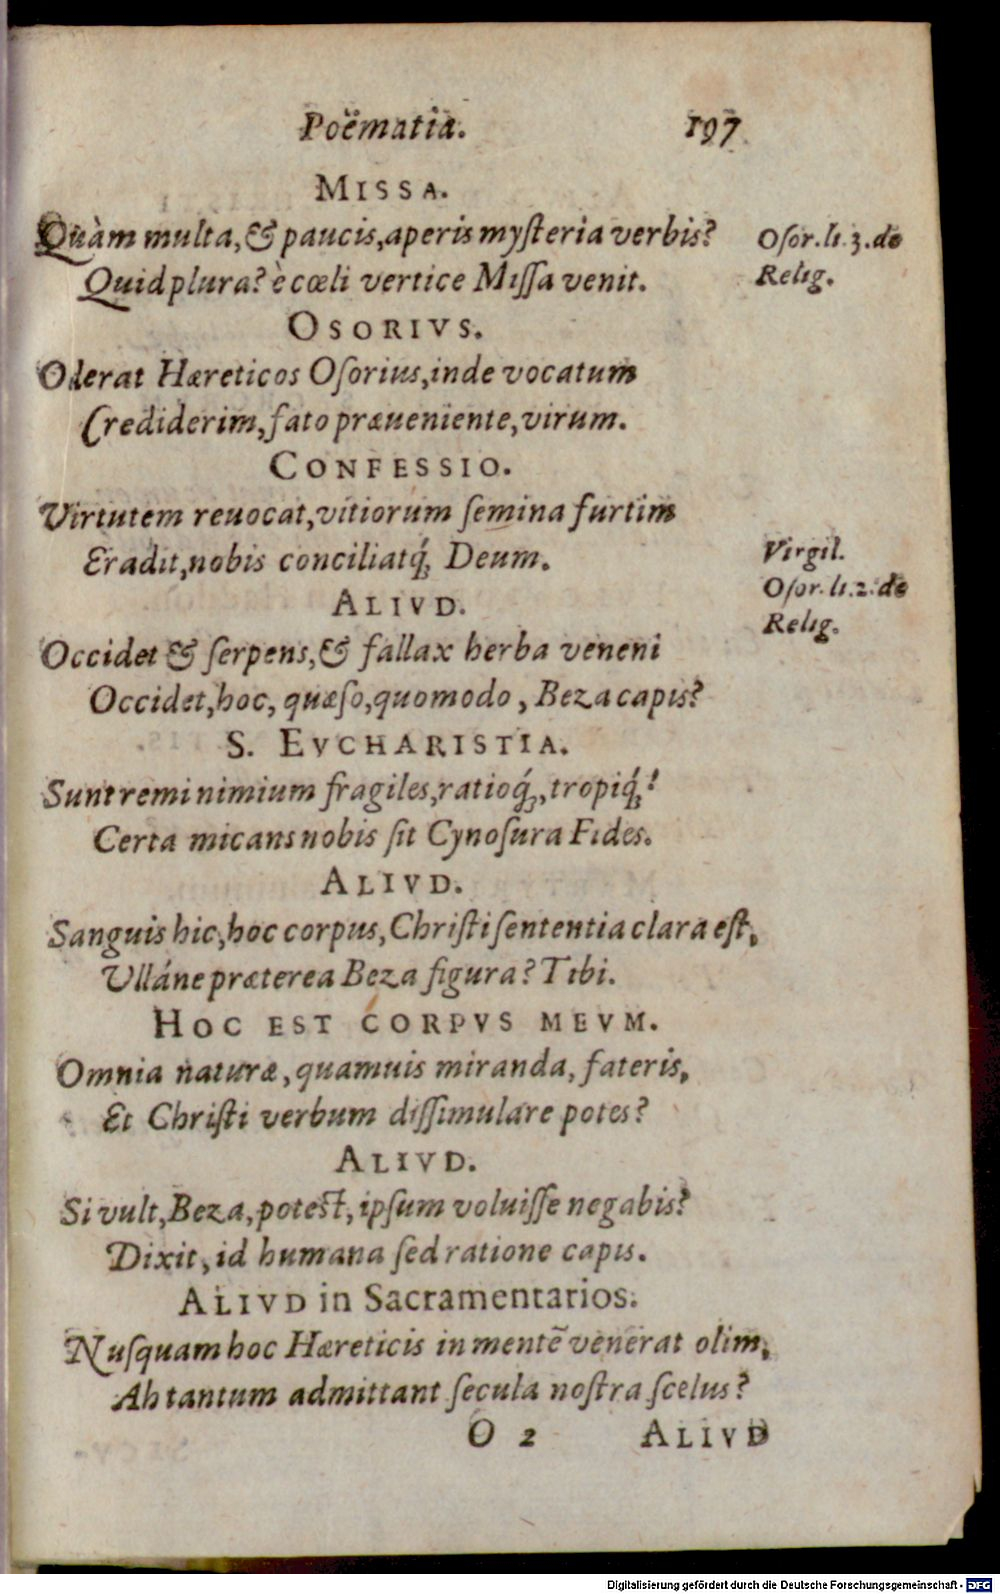 Poëmatia. 197
MISSA.
Quàm multa, & paucis, aperis myſteria verbis?
Oſor. li. 3. de
Quid plura? è cœli vertice Miſſa venit.
Relig.
OSORIVS.
Oderat Hæreticos Oſorius, inde vocatum
Crediderim, fato præueniente, virum.
CONFESSIO.
Virtutem reuocat, vitiorum ſemina furtim
Eradit, nobis conciliatq́; Deum.
Virgil.
Oſor. li. 2. de
Relig.
ALIVD.
Occidet & ſerpens, & fallax herba veneni
Occidet, hoc, quæſo, quomodo, Beza capis?
S. EVCHARISTIA.
Sunt remi nimium fragiles, ratioq́;, tropiq́;!
Certa micans nobis ſit Cynoſura Fides.
ALIVD.
Sanguis hic, hoc corpus, Chriſti ſententia clara eſt,
Vlláne præterea Beza figura? Tibi.
HOC EST CORPVS MEVM.
Omnia naturæ, quamuis miranda, fateris,
Et Chriſti verbum diſſimulare potes?
ALIVD.
Si vult, Beza, poteſt, ipſum voluiſſe negabis?
Dixit, id humana ſed ratione capis.
ALIVD in Sacramentarios.
Nuſquam hoc Hæreticis in mentē venerat olim,
Ah tantum admittant ſecula noſtra ſcelus?
O 2 ALIVD
Digitalisierung gefördert durch die Deutsche Forschungsgemeinschaft - DFG